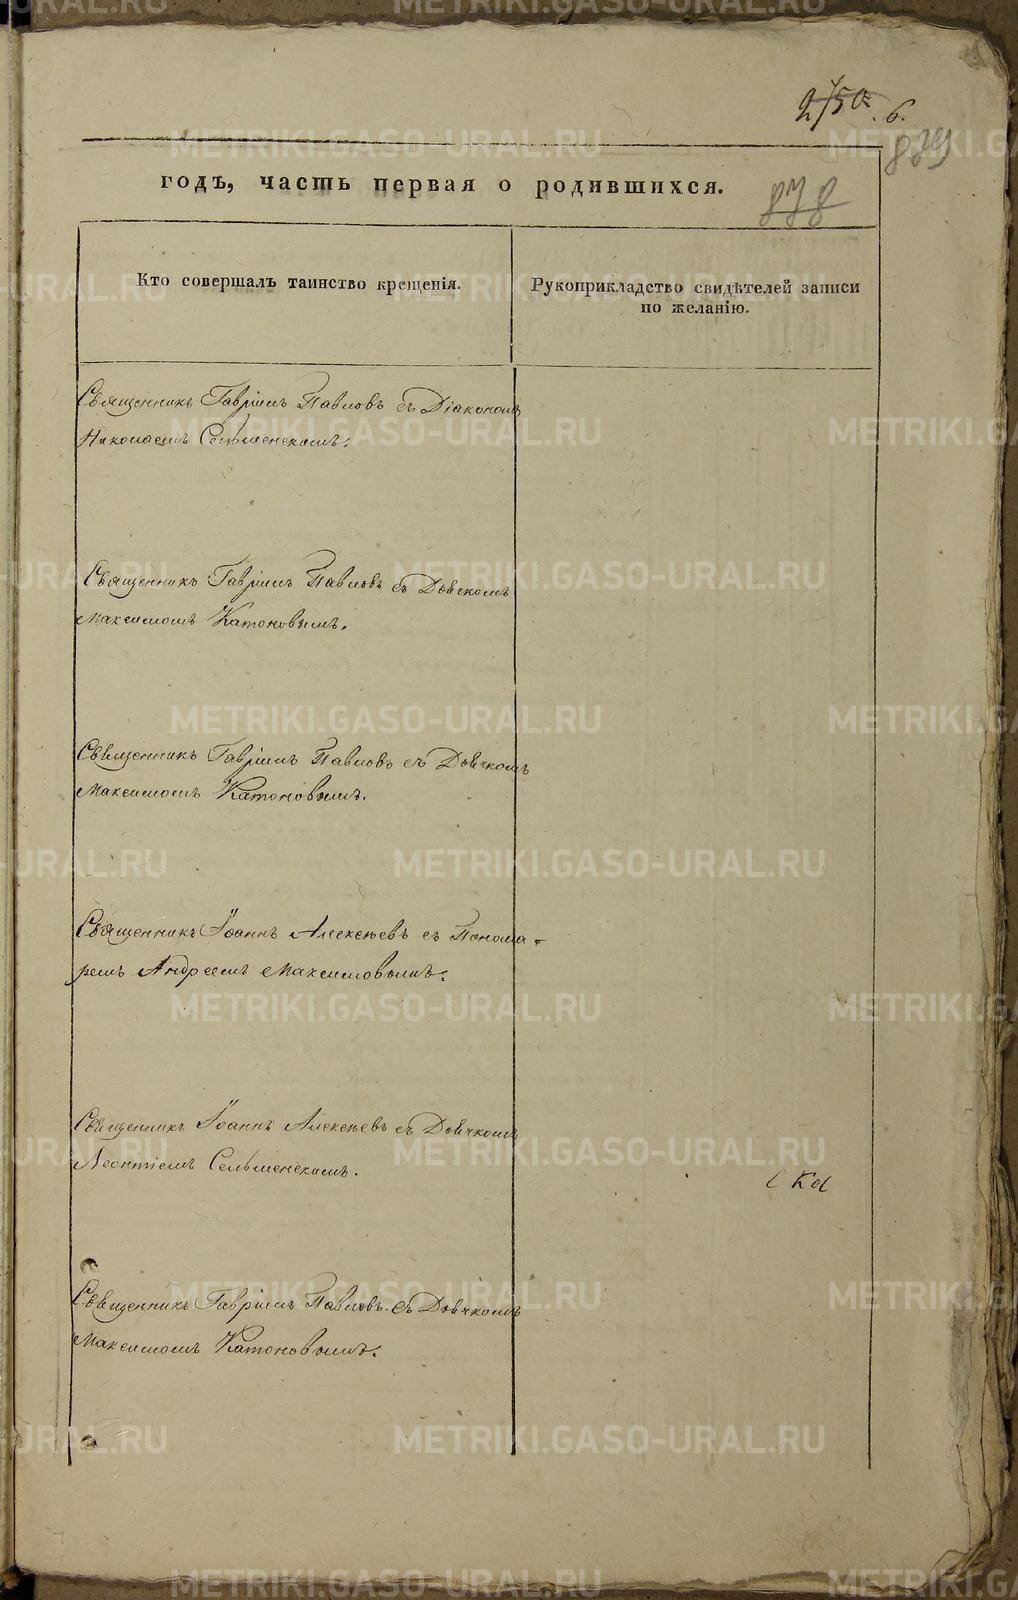 2/50. 6.
839
годъ, часть первая о родившихся.
878
Кто совершалъ таинство крещенія.
Рукоприкладство свидѣтелей записи
по желанію.
Священникъ Гавріилъ Павловъ съ Діакономъ
Николаемъ Сельменскимъ.
Священникъ Гавріилъ Павловъ съ Дьячкомъ
Максимомъ Катоновымъ.
Священникъ Гавріилъ Павловъ съ Дьячкомъ
Максимомъ Катоновымъ.
Священникъ Іоаннъ Алексѣевъ съ Понома-
ремъ Андреемъ Максимовымъ.
Священникъ Іоаннъ Алексѣевъ съ Дьячкомъ
Леонтіемъ Сельменскимъ.
Священникъ Гавріилъ Павловъ съ Дьячкомъ
Максимомъ Катоновымъ.
METRIKI.GASO-URAL.RU